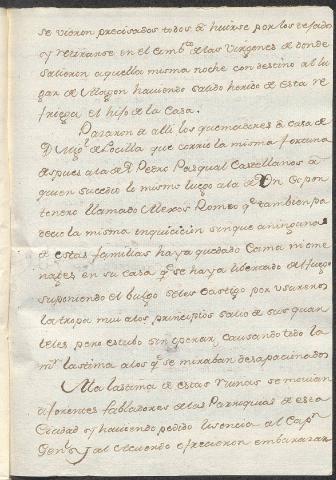 se vieron precisados todos a huirse por los tejados
y retirarse en el Comb.to de las Virgenes de donde
salieron aquella misma noche con destino al lu
gar de Villayon haviendo salido herido de esta re
friega el hijo de la Casa.
Pasaron de alli los quemadores a casa de
D. Mig.l de Losilla que corrio la misma fortuna
despues a la de D. Pedro Pasqual Castellanos a
quien sucedio lo mismo luego a la de Un Carpin
tenero llamado Alexos Romeo q.e tambien pa
decio la misma inquicicion sin que a ninguna
de estas familias haya quedado Cama ni me
nages en su casa q.e se haya libertado del fuego
suponiendo el bulgo ser los Castigo por usureros
la tropa mui a los principios salio de sus quar
teles pero estubo sin operar causando todo la
m.r lastima a los q.e se miraban desapacinados
A la lastima de estas ruinas se movian
diferentes fabladores de las Parroquias de esta
Ciudad y haviendo pedido lisencia al Cap.n
Gen.l y al Acuerdo ofrecieron embarazar